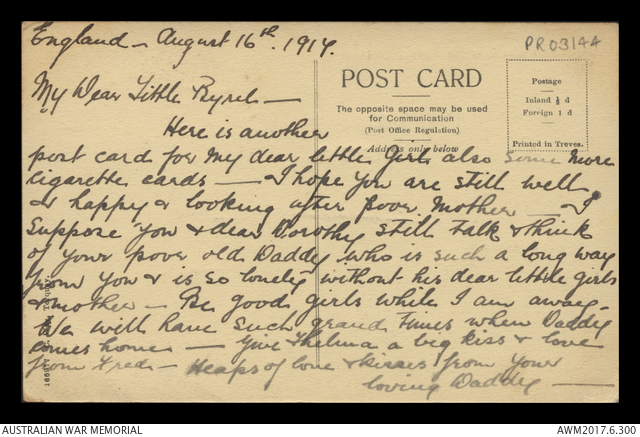 England - August 16th. 1917.
PR03144
My Dear Little Byrel -
POST CARD
The opposite space may be used
for Communication
(Post Office Regulation)
Address only below
Postage
Inland ½ d
Foreign 1 d
Printed in Treves.
Here is another
post card for my dear little Girl also some more
cigarette cards - I hope you are still well
& happy & looking after poor Mother - I
suppose you & dear Dorothy still talk & think
of your poor old Daddy who is such a long way
from you & is so lonely without his dear little girls
& mother - Be good girls while I am away -
We will have such grand times when Daddy
comes home - Give Thelma a big kiss & love
from Fred - Heaps of love & kisses from your
loving Daddy -
AUSTRALIAN WAR MEMORIAL
AWM2017.6.300